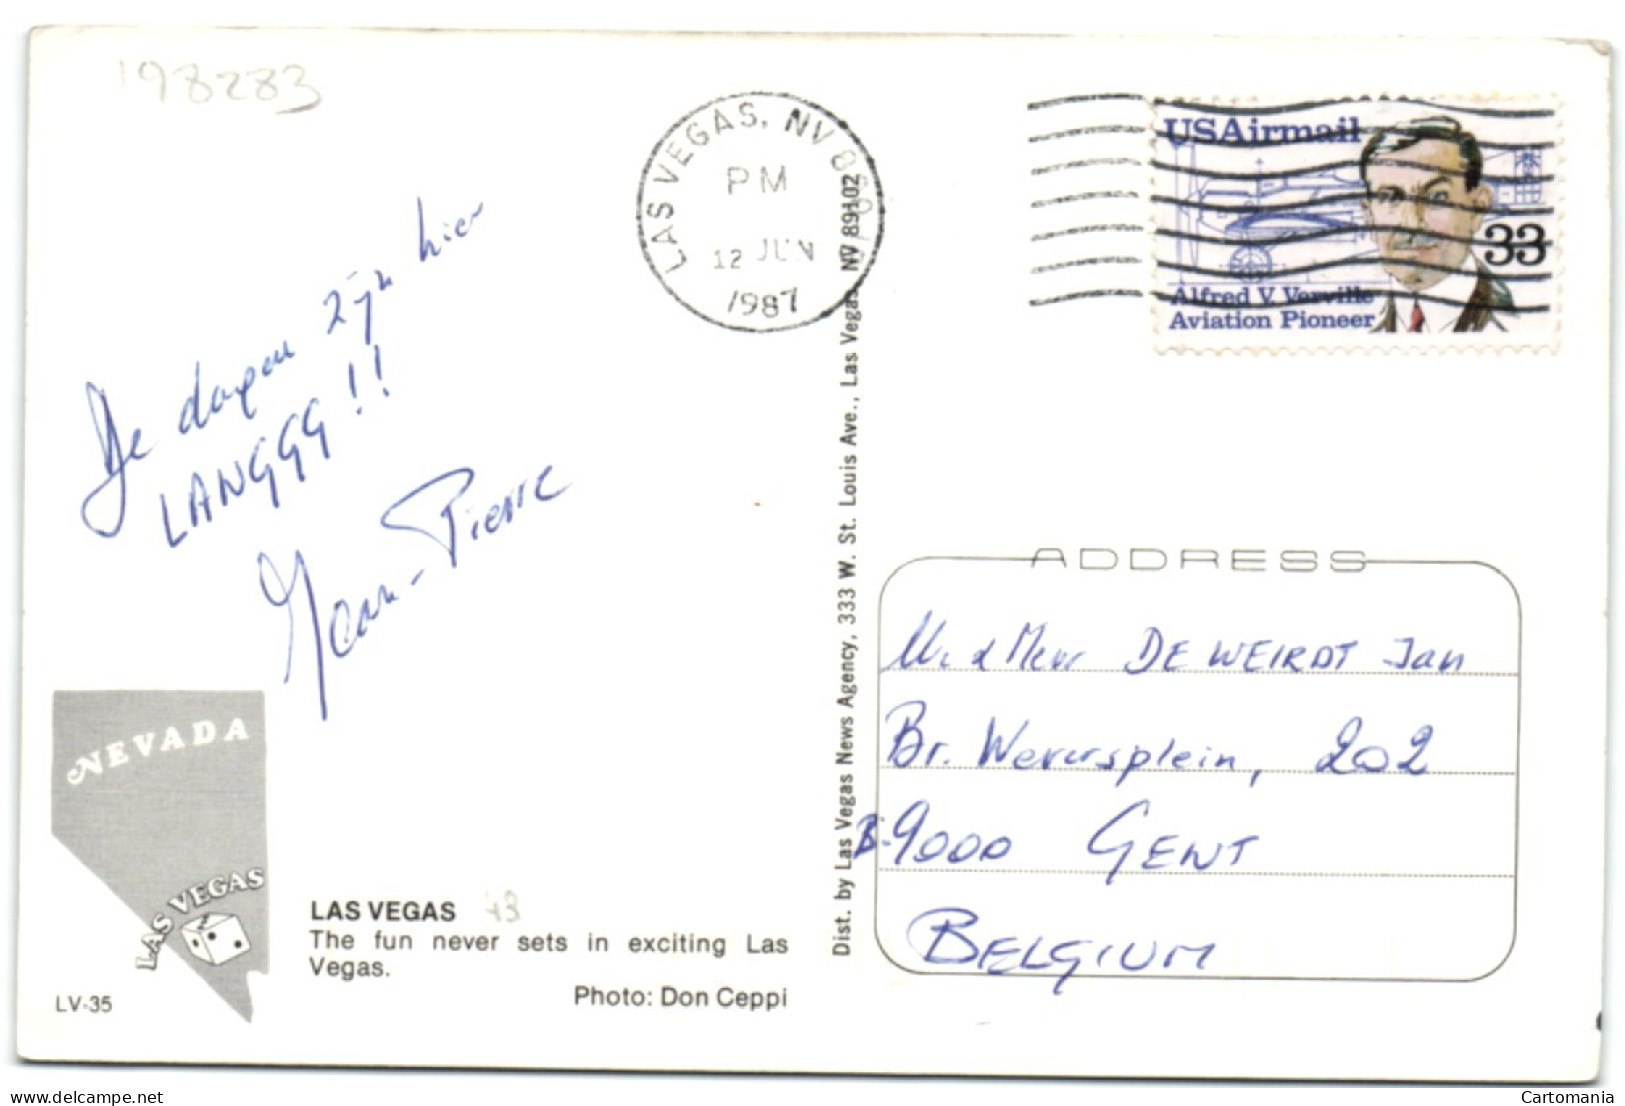 198283
LAS VEGAS, NV
PM
12 JUN
1987
USAirmail
33
Alfred V. Verville
Aviation Pioneer
De dagen zijn hier
LANGGG!!
Jean-Pierre
Dist. by Las Vegas News Agency, 333 W. St. Louis Ave., Las Vegas, NV 89102
ADDRESS
M. & Mevr DE WEIRDT Jan
Br. Weversplein, 202
B-9000 GENT
BELGIUM
NEVADA
LAS VEGAS
LAS VEGAS 43
The fun never sets in exciting Las
Vegas.
Photo: Don Ceppi
LV-35
www.delcampe.net
Cartomania